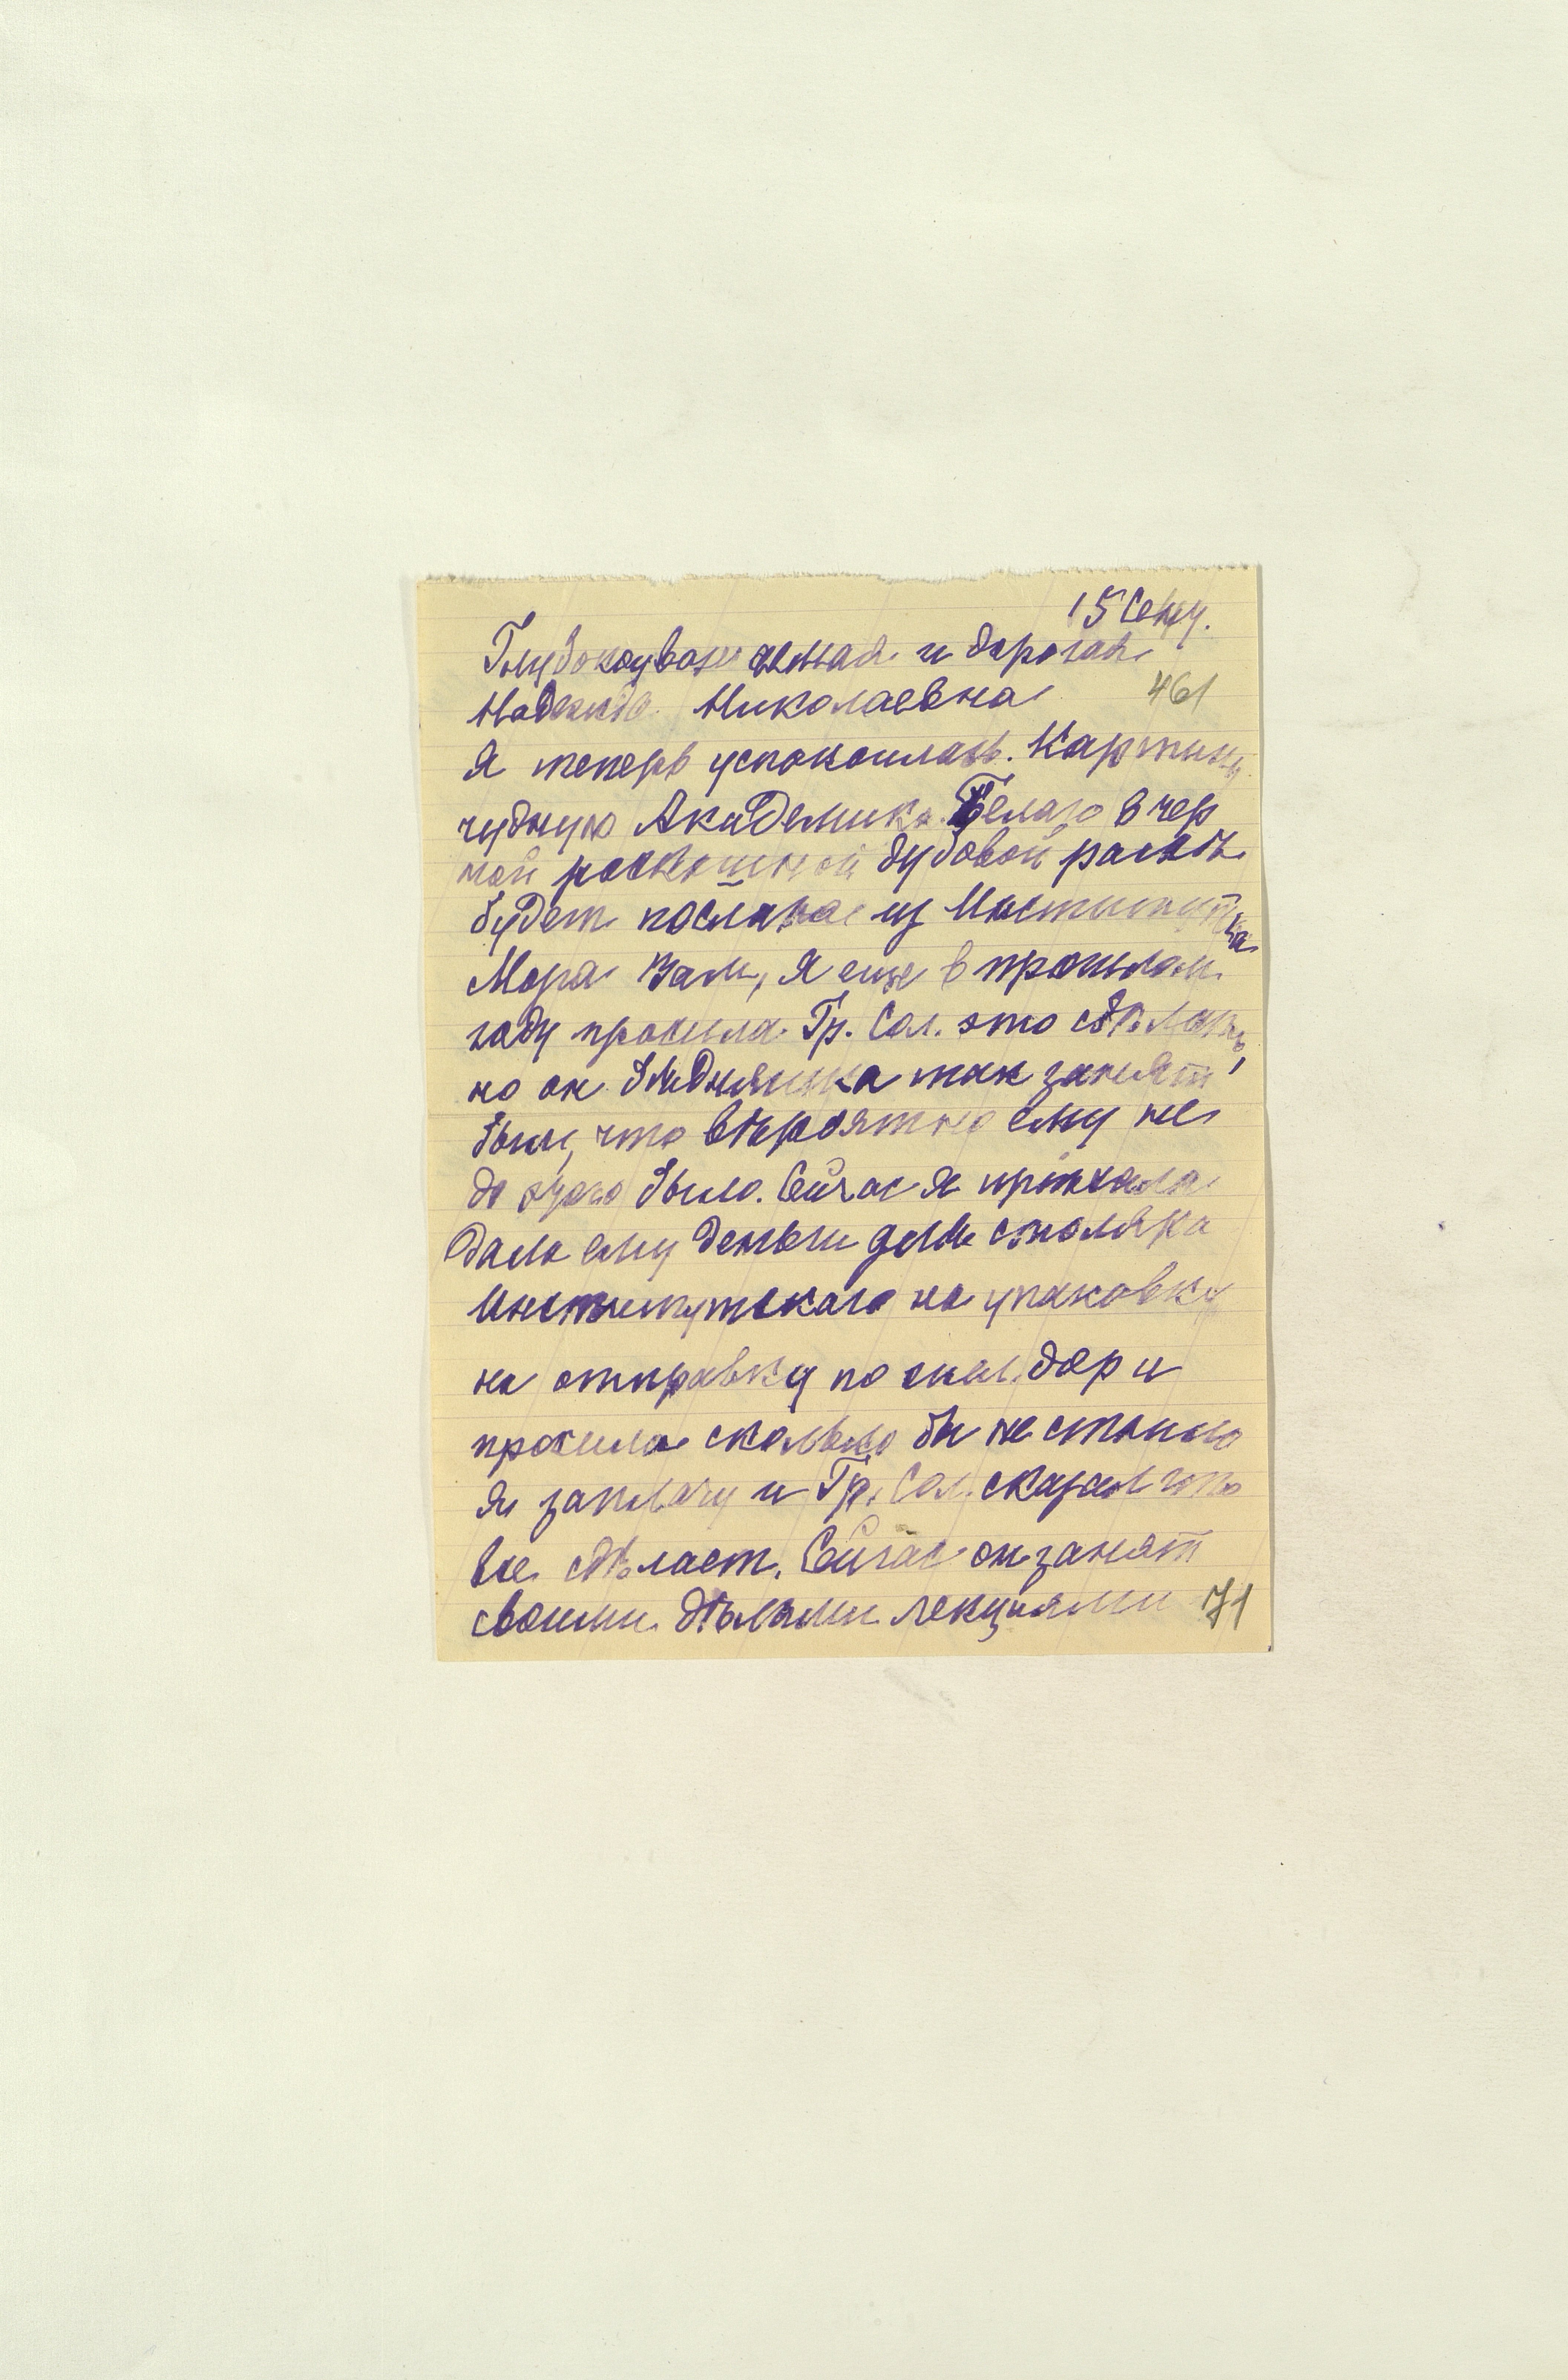 15 Сент.
Глубокоуважаемая и дорогая
461
Надежда Николаевна
Я теперь успокоилась. Картину
чудную Академика Белаго в чер
ной роскошной дубовой рамѣ
будет послана из Института
Мора Вам, я еще в прошлом
году просила Гр. Сол. это сдѣлать,
но он бѣдняшка так занят
был, что вѣроятно ему не
до этого было. Сейчас я приѣхала
дала ему деньги для столяра
Институтскаго на упаковку
на отправку по жел. дор и
просила сколько бы не стоило
я заплачу и Гр. Сол. сказал что
все сдѣлает. Сейчас он занят
своими дѣлами лекциями
71